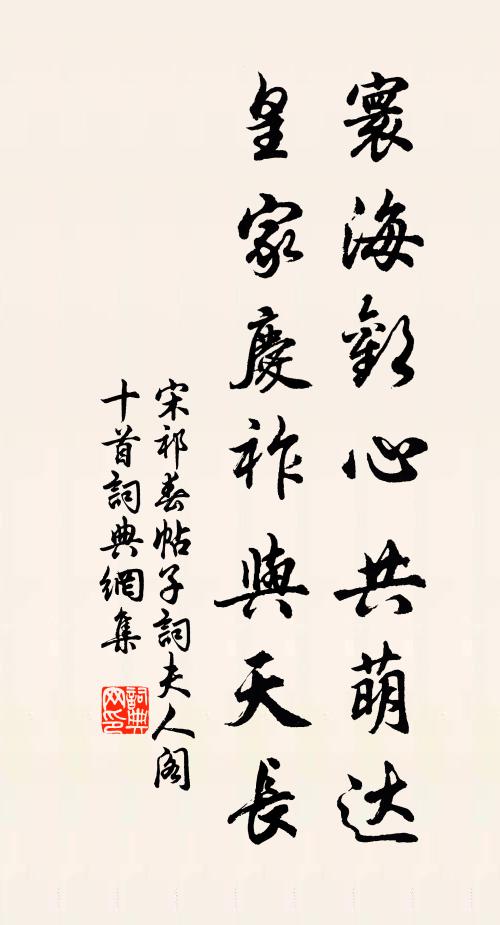 寰海歡心共萌达
皇家慶祚與天長
宋祁春帖子詞夫人閣
十首詞典網集
詞典网印